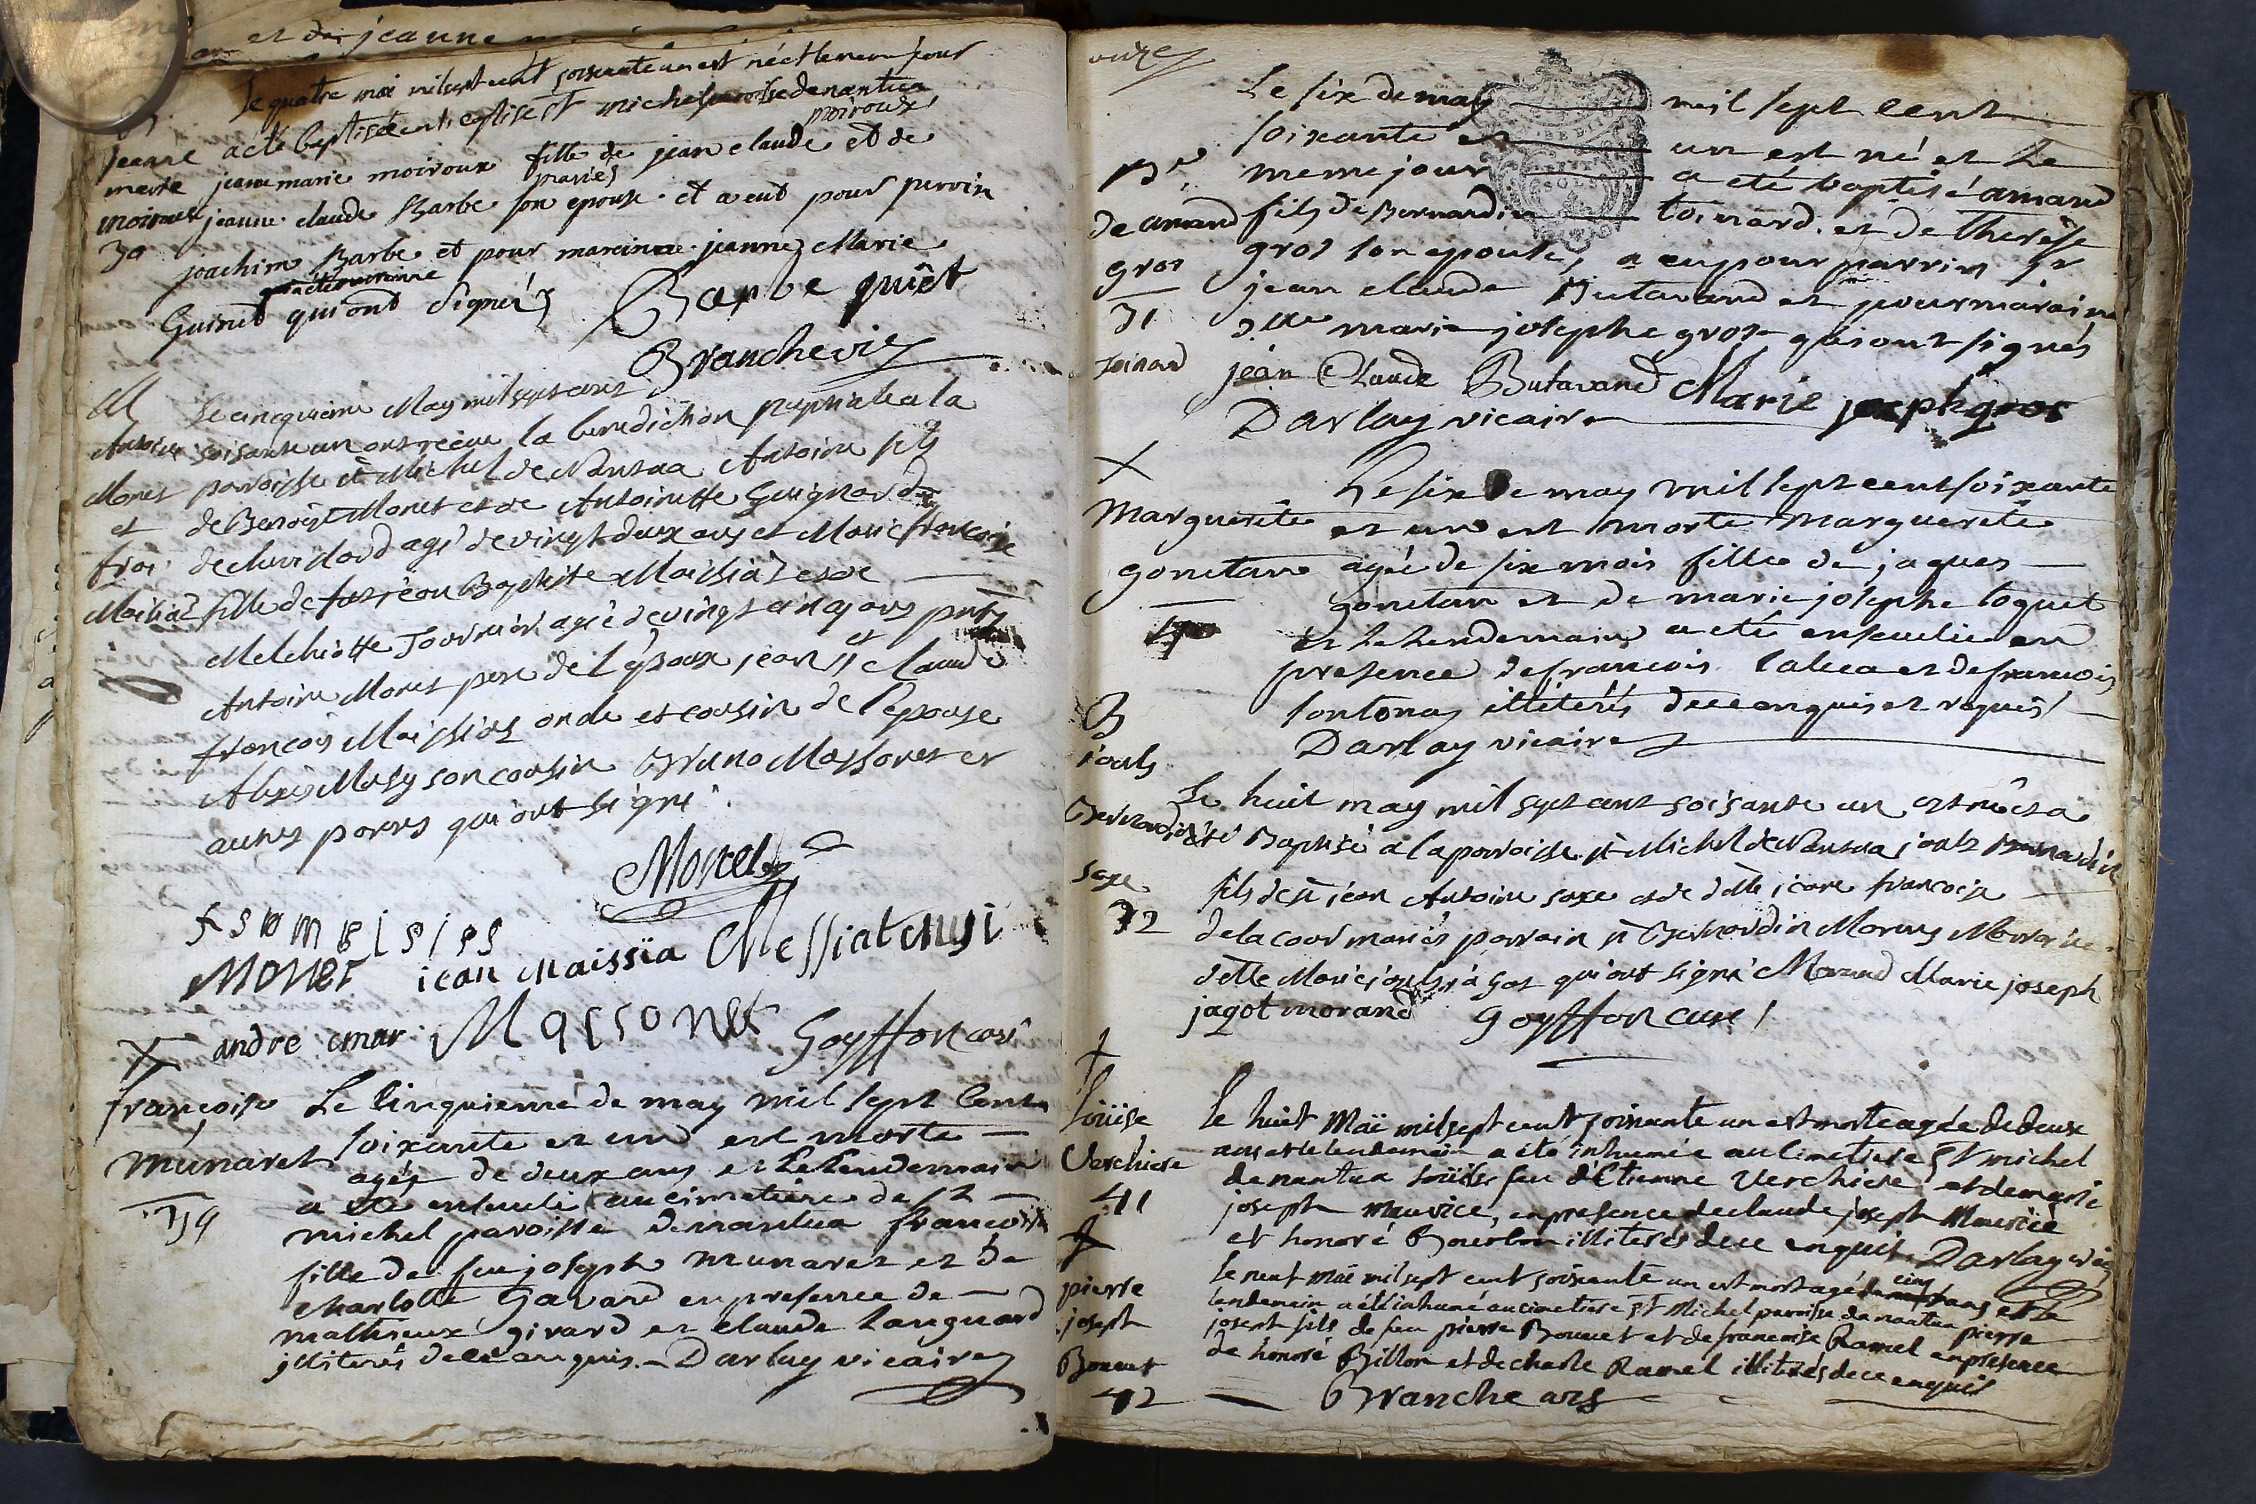 et de jeanne
Le quatre mai mil sept cent soixante un est née et le meme jour
B.
jeanne
marie
moiroux
30
a eté baptisée en l'eglise St michel paroisse de nantua
jeane marie moiroux fille de jean claude moiroux et de
jeanne claude Barbe son epouse mariés et a eut pour parrin
joachim Barbe et pour marainne jeanne Marie
Guinet qui ont signés Barbe guiet
Branche vic
M
Antoine
Monet
et
froi.
Maissiat
Le cinquieme May mil sept cent
soisante un ont reçeu la benediction nuptiale a la
parroisse st Michel de Nantua Antoine fils
de Benoist Monet et de Antoinette Guignard
de Chevillard agé de vingt deux ans et Marie francoise
fille de jean Baptiste Maissiat et de
Melchiotte Tournier agée de vingt cinq ans pnts
Antoine Monet pere de l'epoux jean et Claude
francois Maissiat oncle et cousin de l'epouse
Alexis Musy son cousin Bruno Massonet et
autres parens qui ont signé.
Monet
MONET jean Maissïa Messiat Musi
andre emar Massonet Goyffon curé
X
françoise
munaret
39
Le Cinquieme de may mil sept Cent
soixante et un est morte
agée de deux ans et le Lendemain
a eté enseveli au cimetiere de st
michel paroisse de nantua françoise
fille de feu joseph munaret et de
charlotte Gavand en presence de
mathieux girard et claude Languard
illiterés de ce enquis. Darlay vicaire
onze
B.
de amand
gros
31
toinard
Le six de may mil sept cent
soixante et un est né et Le
meme jour a eté baptisé amand
fils de Bernardin toinard et de Therese
gros son epouse, a eu pour parrin sr
jean claude Butavand et pour maraine
dlle marie josephe gros qui ont signés
jéan Claude Butavand Marie joseph gros
Darlay vicaire
X
Marguerite
gonetan
Le six de may mil sept cent soixante
et un est morte marguerite
ageé de six mois fille de jaques
gonetan et de marie josephe toguet
et le Lendemain a eté enseveli en
presence de francois et de francois
fontenay illiterés de ce enquis et requis
Darlay vicaire
B
joach
Bernardin
saxe
32
Le huit may mil sept cent soisante un est né et a
été Baptisé a la parroisse st Michel de Nantua joach Bernardin
fils de sr jean Antoine saxe et de dlle jeane francoise
de la cour mariés parrain sr Bernardin Morand Marraine
delle Marie joseph jagot qui ont signé Morand Marie joseph
jagot morand Goyffon curé
Loüise
Verchiere
41
Le huit Maï mil sept cent soixante un est morte agée de deux
ans et le lendemain a été inhumée au Cimetiere St michel
de nantua Loüise feu d'Etienne Verchiere et de marie
joseph Maurice, en presence de claude joseph Maurice
et honoré Bourbon illiterés de ce enquis. Darlay vic
pierre
joseph
Bonnet
42
Le neuf Maï mil sept cent soixante un est mort agé de cinq ans et le
lendemain a été inhumé au cimetiere St Michel paroisse de nantua pierre
joseph fils de feu pierre Bonnet et de francoise Ramel en presence
de honoré Billon et de charle Ramel illiterés de ce enquis
Branche vic